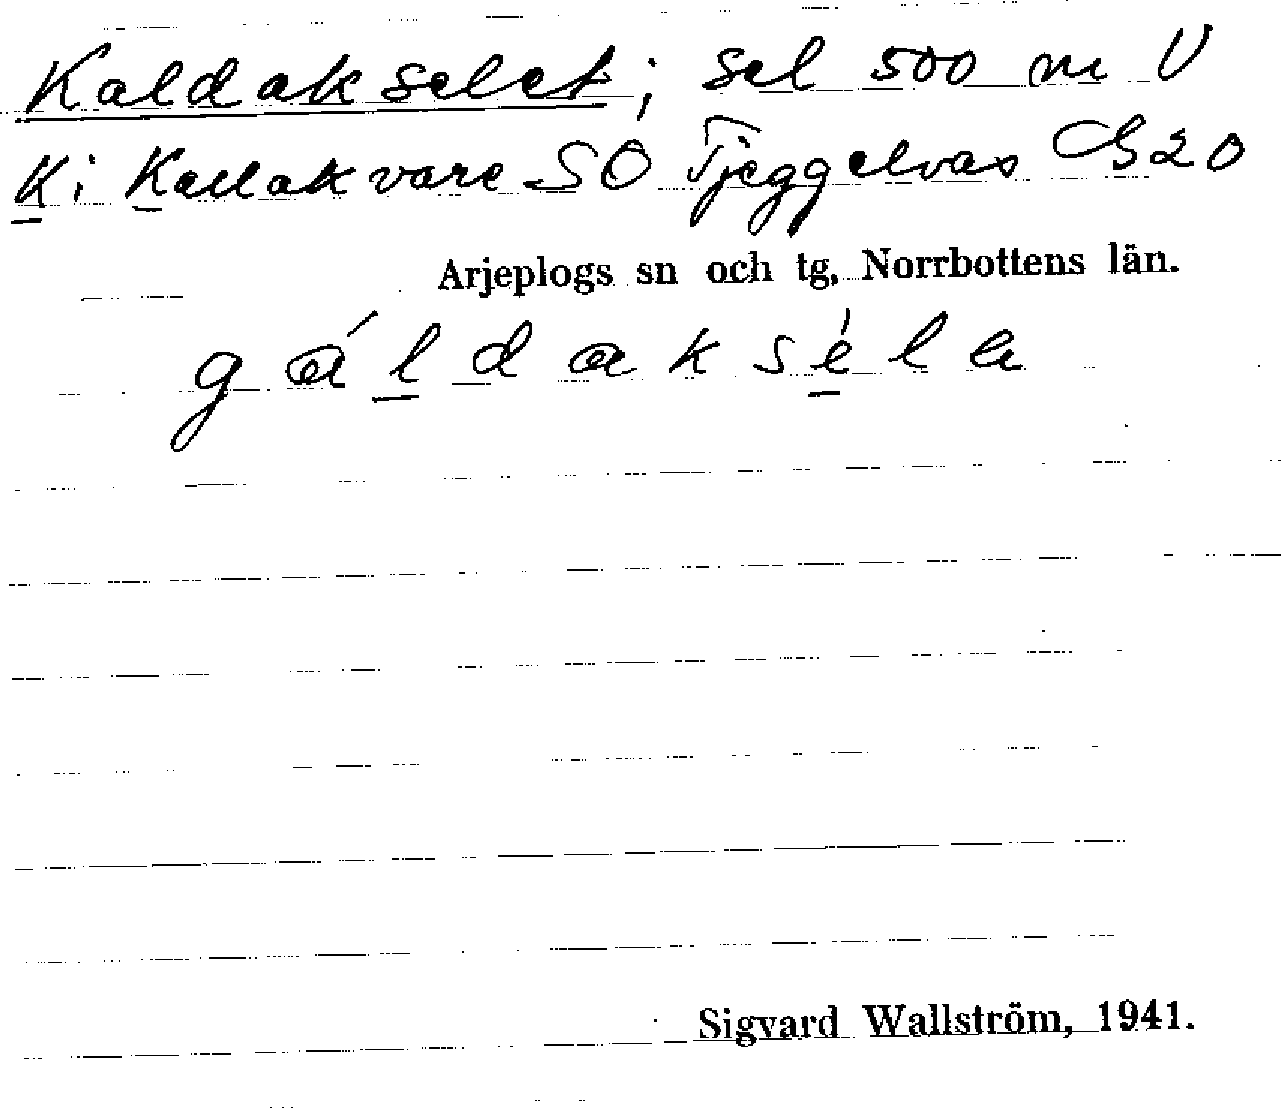 Kaldakselet; sel 500 m V
K i Kallakvare SÖ Tjeggelvas G20
Arjeplogs sn och tg, Norrbottens län.
gáldakséla
Sigvard Wallström, 1941.